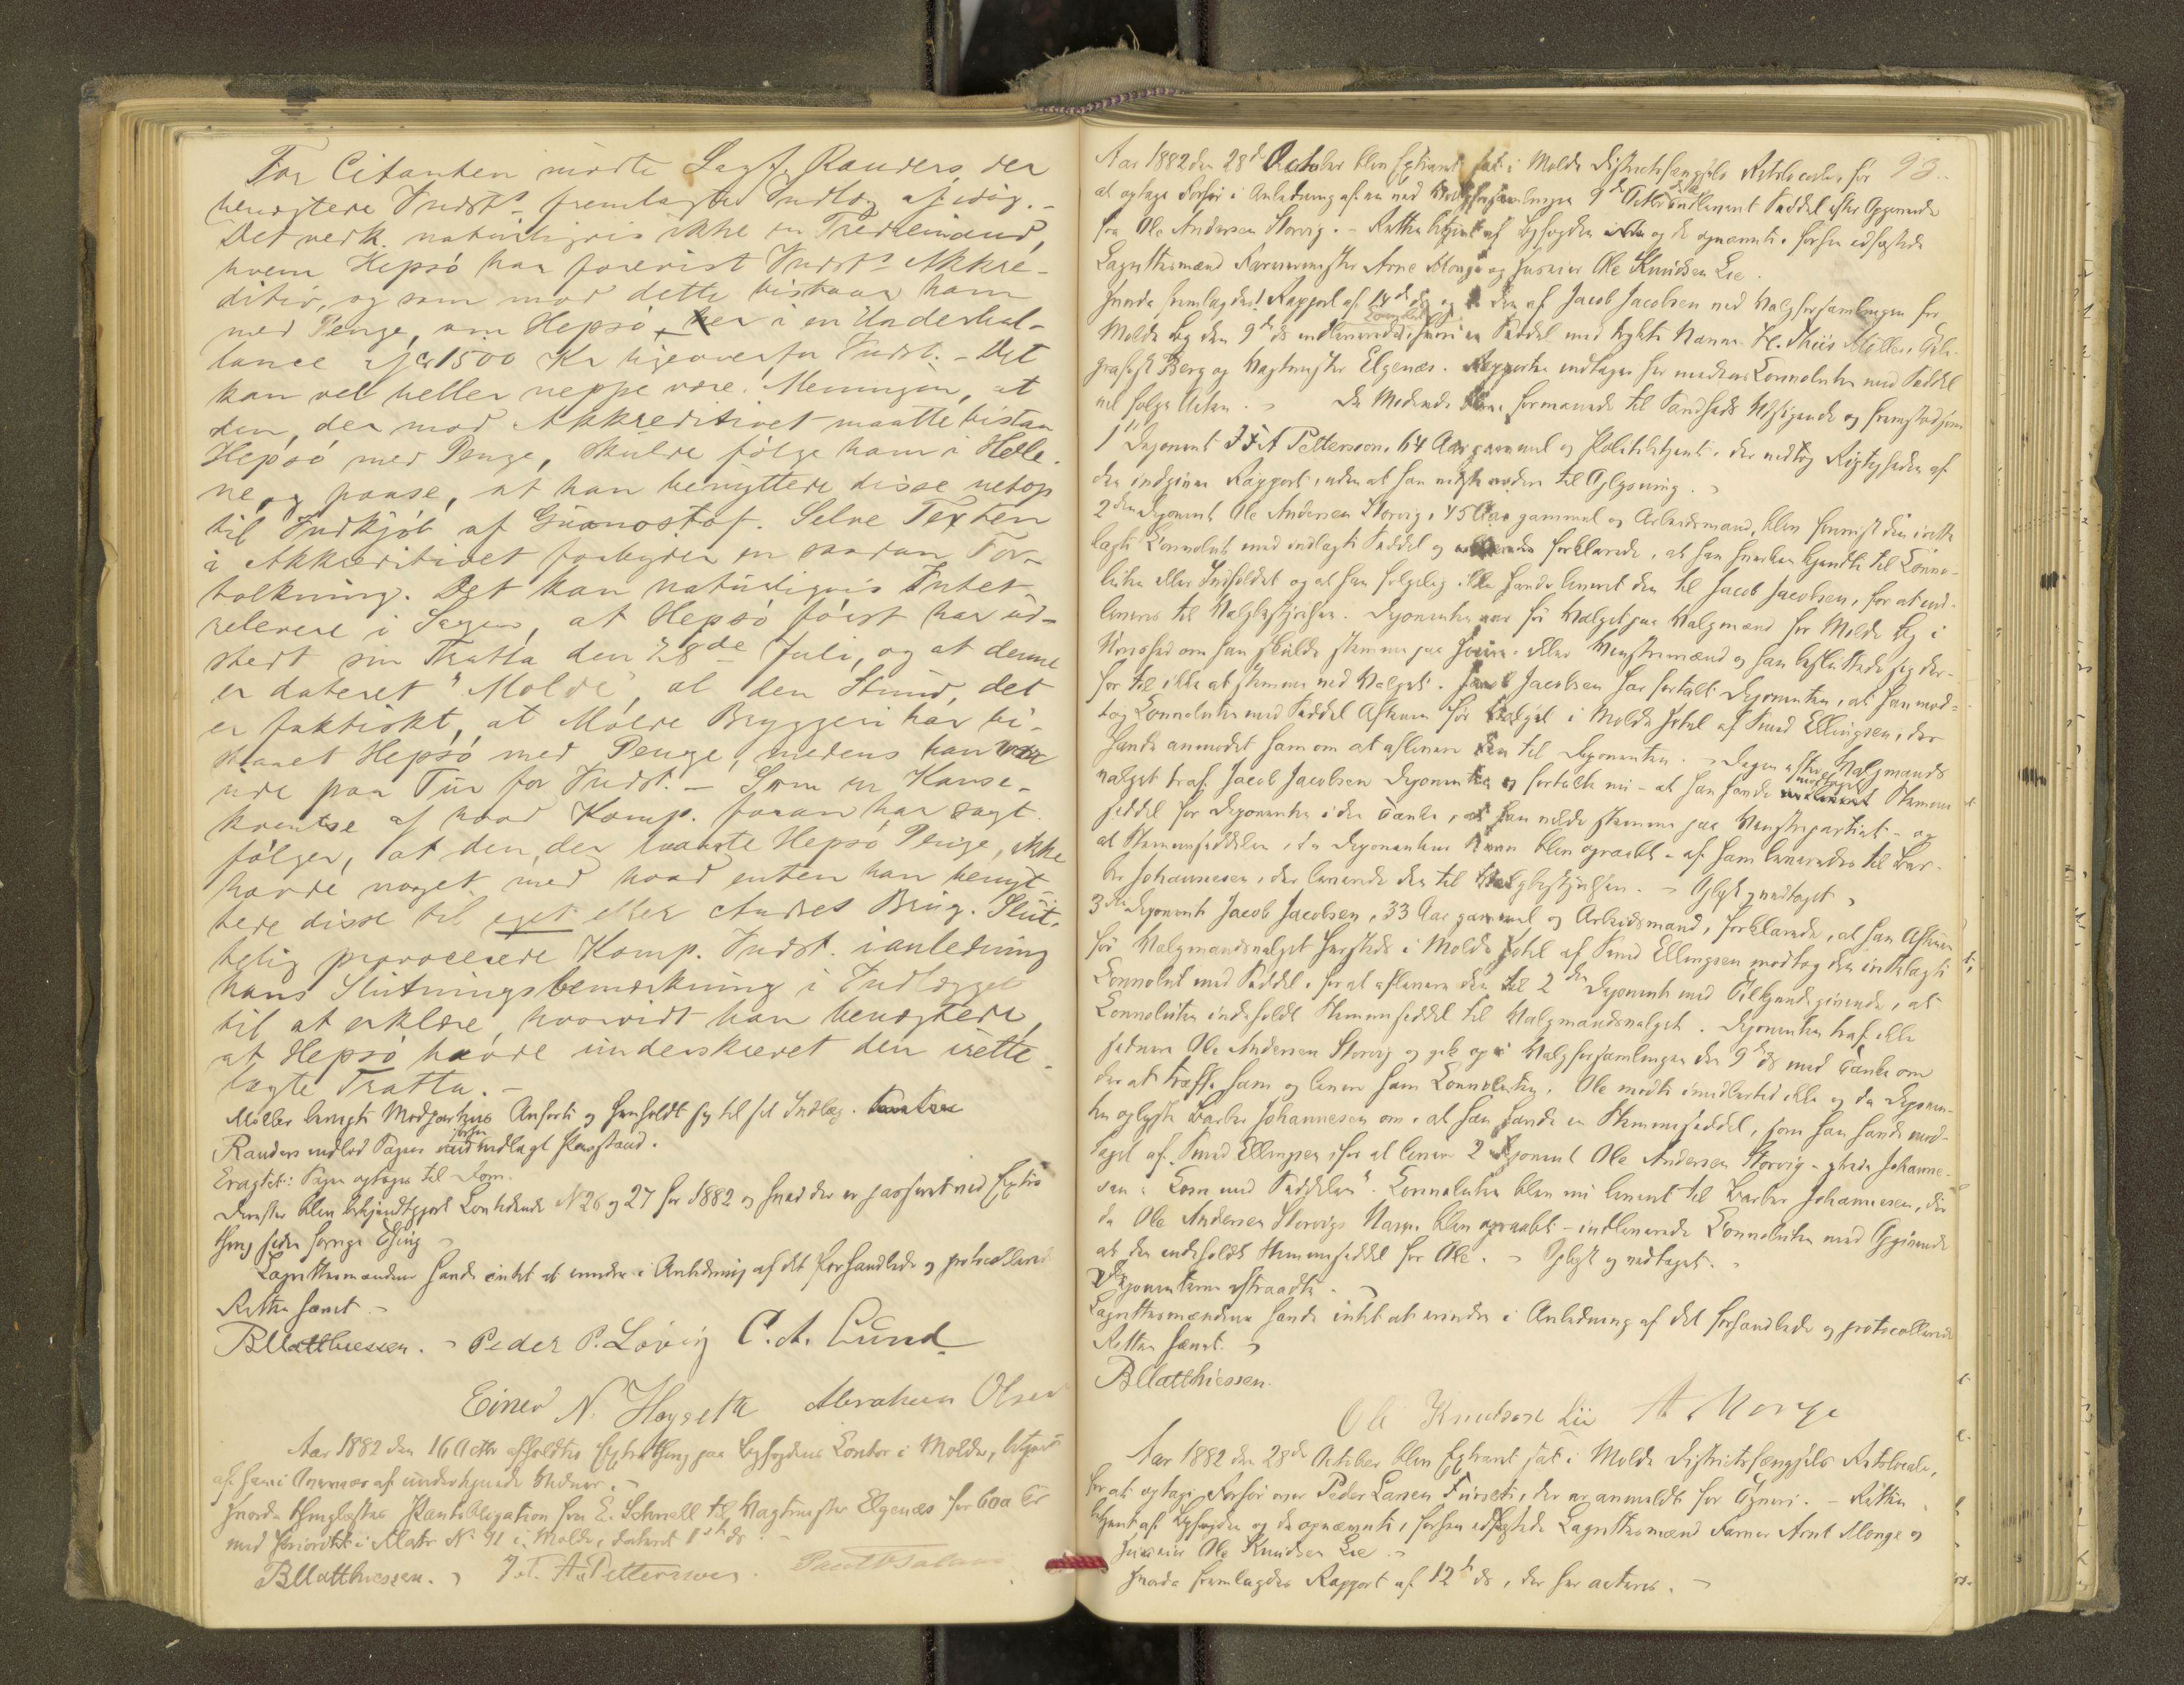 For Citanten mødte Sagf. Randers, der
benegtede Indst.s fremlagte Indlæg af idag. -
Det verk. naturligvis ikke en Trediemand,
hvem Hepsø har forevist Indst.s Akkre-
ditiv, og som mod dette bistaar ham
med Penge, om Hepsø er i en Underbal-
lance af ca 1500 Kr ligeoverfor Indst. - Det
kan vel heller neppe være Meningen, at
den, der mod Akkreditivet maatte bistaa
Hepsø med Penge, skulde følge ham i Hælle-
ne, og paase, at han benyttede disse netop
til Indkjøb af Guanostof. Selve Texten
i Akkreditivet forbyder en saadan For-
tolkning. Det kan naturligvis Intet
relevere i Sagen, at Hepsø først har ud-
stedt sin Tratta den 28de Juli, og at denne
er dateret "Molde", al den Stund, det
er faktiskt, at Molde Bryggeri har bi-
staaet Hepsø med Penge, medens han var
ude paa Tur for Indst. - Som en Konse-
kventse af hvad Komp. foran har sagt
følger, at den, der laante Hepsø Penge, ikke
havde noget med hvad enten han benyt-
tede disse til eget eller Andres Brug. Slut-
telig provocerede Komp. Indst. i anledning
hans Slutningsbemærkning i Indlægget
til at erklære, hvorvidt han benegtede,
at Hepsø havde underskrevet den irette-
lagte Tratta. -
Møller benegte Modpartens Anførte og henholdt sig til sit Indlæg.
Randers indlod Sagen under nedlagt Paastand.
Eragtet: Sagen optages til Dom.
Derefter blev bekjendtgjort Lovtidende No 26 og 27 for 1882 og hvad der er passeret ved Extra
thing siden forrige Thing
Lagrettesmændene havde intet at erindre i Anledning af det Forhandlede og protocollerede
Retten hævet. -
BMatthiessen. - Peder P. Løvig C. A. Lund
Einer N. Høyseth Abraham Olsen
Aar 1882 den 16 Octbr afholdtes Extrathing paa Byfogdens Contor i Molde, betjent
af ham i Overvær af undertegnede Vidner. -
Hvorda thinglæstes Pantobligation fra E. Schnell til Vagtmester Elgenæs for 600 Kr
med Prioritet i Matr No 91 i Molde, dateret ds. -
BMatthiessen. J. F. A. Pettersson.
93.
Aar 1882 den 28de October blev Extraret sat i Molde Districtsfængsels Retslocale, for
at optage Forhør i Anledning af en ved Valgforsamlingen 9de Octbr indleveret Seddel efter Opgivende
fra Ole Andersen Storvig. - Retten betjent af Byfogden og de opnævnte, forhen edfæstede
Lagrettesmænd Farvermester Arne Monge og Huseier Ole Knudsen Lie.
Hvorda fremlagdes: Rapport af 14de ds og den af Jacob Jacobsen ved Valgforsamlingen for
Molde By den 9de ds indleverede Konvolut, hvori en Seddel med trykte Navne H. Thiis Møller, Tele-
grafist Berg og Vagtmester Elgenæs. Rapporten indtages her medens Konvoluten med Seddel
vil følge Akten. De Mødende blev formanede til Sandheds Udsigende og fremstod som
1ste Deponent I F A Pettersson, 64 Aar gammel og Politibetjent, der vedtog Rigtigheden af
den indgivne Rapport, uden at han vidste andre til Oplysning.
2den Deponent Ole Andersen Storvig, 45 Aar gammel og Arbeidsmand, blev forevist den irette
lagte Konvolut med indlagte Seddel og forklarede, at han hverken kjendte til Konvo-
luten eller Indholdet og at han følgelig ikke havde leveret den til Jacob Jacobsen, for at ind-
leveres til Valgbestyrelsen. Deponenten var før Valget paa Valgmænd for Molde By i
Uvished om han skulde stemme paa Høire- eller Venstremænd og han besluttede sig der-
for til ikke at stemme ved Valget. Jacob Jacobsen har fortalt Deponenten, at han mod-
tog Konvoluten med Seddel Aftenen før Valget i Molde Hotel af Knud Ellingsen, der
havde anmodet ham om at aflevere den til Deponenten. Dagen efter Valgmands
valget traf Jacob Jacobsen Deponenten og fortalte nu - at han havde modtaget Stemme
seddel for Deponenten i den Tanke, at han vilde stemme paa Venstrepartiet - og
at Stemmeseddelen, da Deponentens Navn blev opraabt - af ham leveredes til Bar-
ber Johannesen, der leverede den til Valgbestyrelsen. - Oplæst og vedtaget.
3die Deponent Jacob Jacobsen, 33 Aar gammel og Arbeidsmand, forklarede, at han Aftenen
før Valgmandsvalget hersteds i Molde Hotel af Knud Ellingsen modtog den irettelagte
Konvolut med Seddel, for at aflevere den til 2den Deponent med Tilkjendegivende, at
Konvoluten indeholdt Stemmeseddel til Valgmandsvalget. Deponenten traf ikke
senere Ole Andersen Storvig og gik op i Valgforsamlingen den 9de ds med Tanke om
der at træffe ham og levere ham Konvoluten. Ole mødte imidlertid ikke og da Deponen-
ten oplyste Barber Johannesen om, at han havde en Stemmeseddel, som han havde mod-
taget af Knud Ellingsen, for at levere 2 Deponent Ole Andersen Storvig - ytrede Johanne-
sen "Kom med Seddelen". Konvoluten blev nu leveret til Barber Johannesen, der
da Ole Andersen Storvigs Navn blev opraabt - indleverede Konvoluten med Opgivende
at den indeholdt Stemmeseddel for Ole. - Oplæst og vedtaget.
Deponenterne aftraadte. -
Lagrettesmændene havde intet at erindre i Anledning af det forhandlede og protocollerede
Retten hævet.
BMatthiessen.
Ole Knudsen Lie A. Monge
Aar 1882 den 28de October blev Extraret sat i Molde Districtsfængsels Retslocale,
for at optage Forhør over Peder Larsen Furset, der er anmeldt for Tyveri. - Retten
betjent af Byfogden og de opnævnte, forhen edfæstede Lagrettesmænd Farver Arnt Monge og
Huseier Ole Knudsen Lie. -
Hvorda fremlagdes Rapport af 12te ds, der her acteres. -